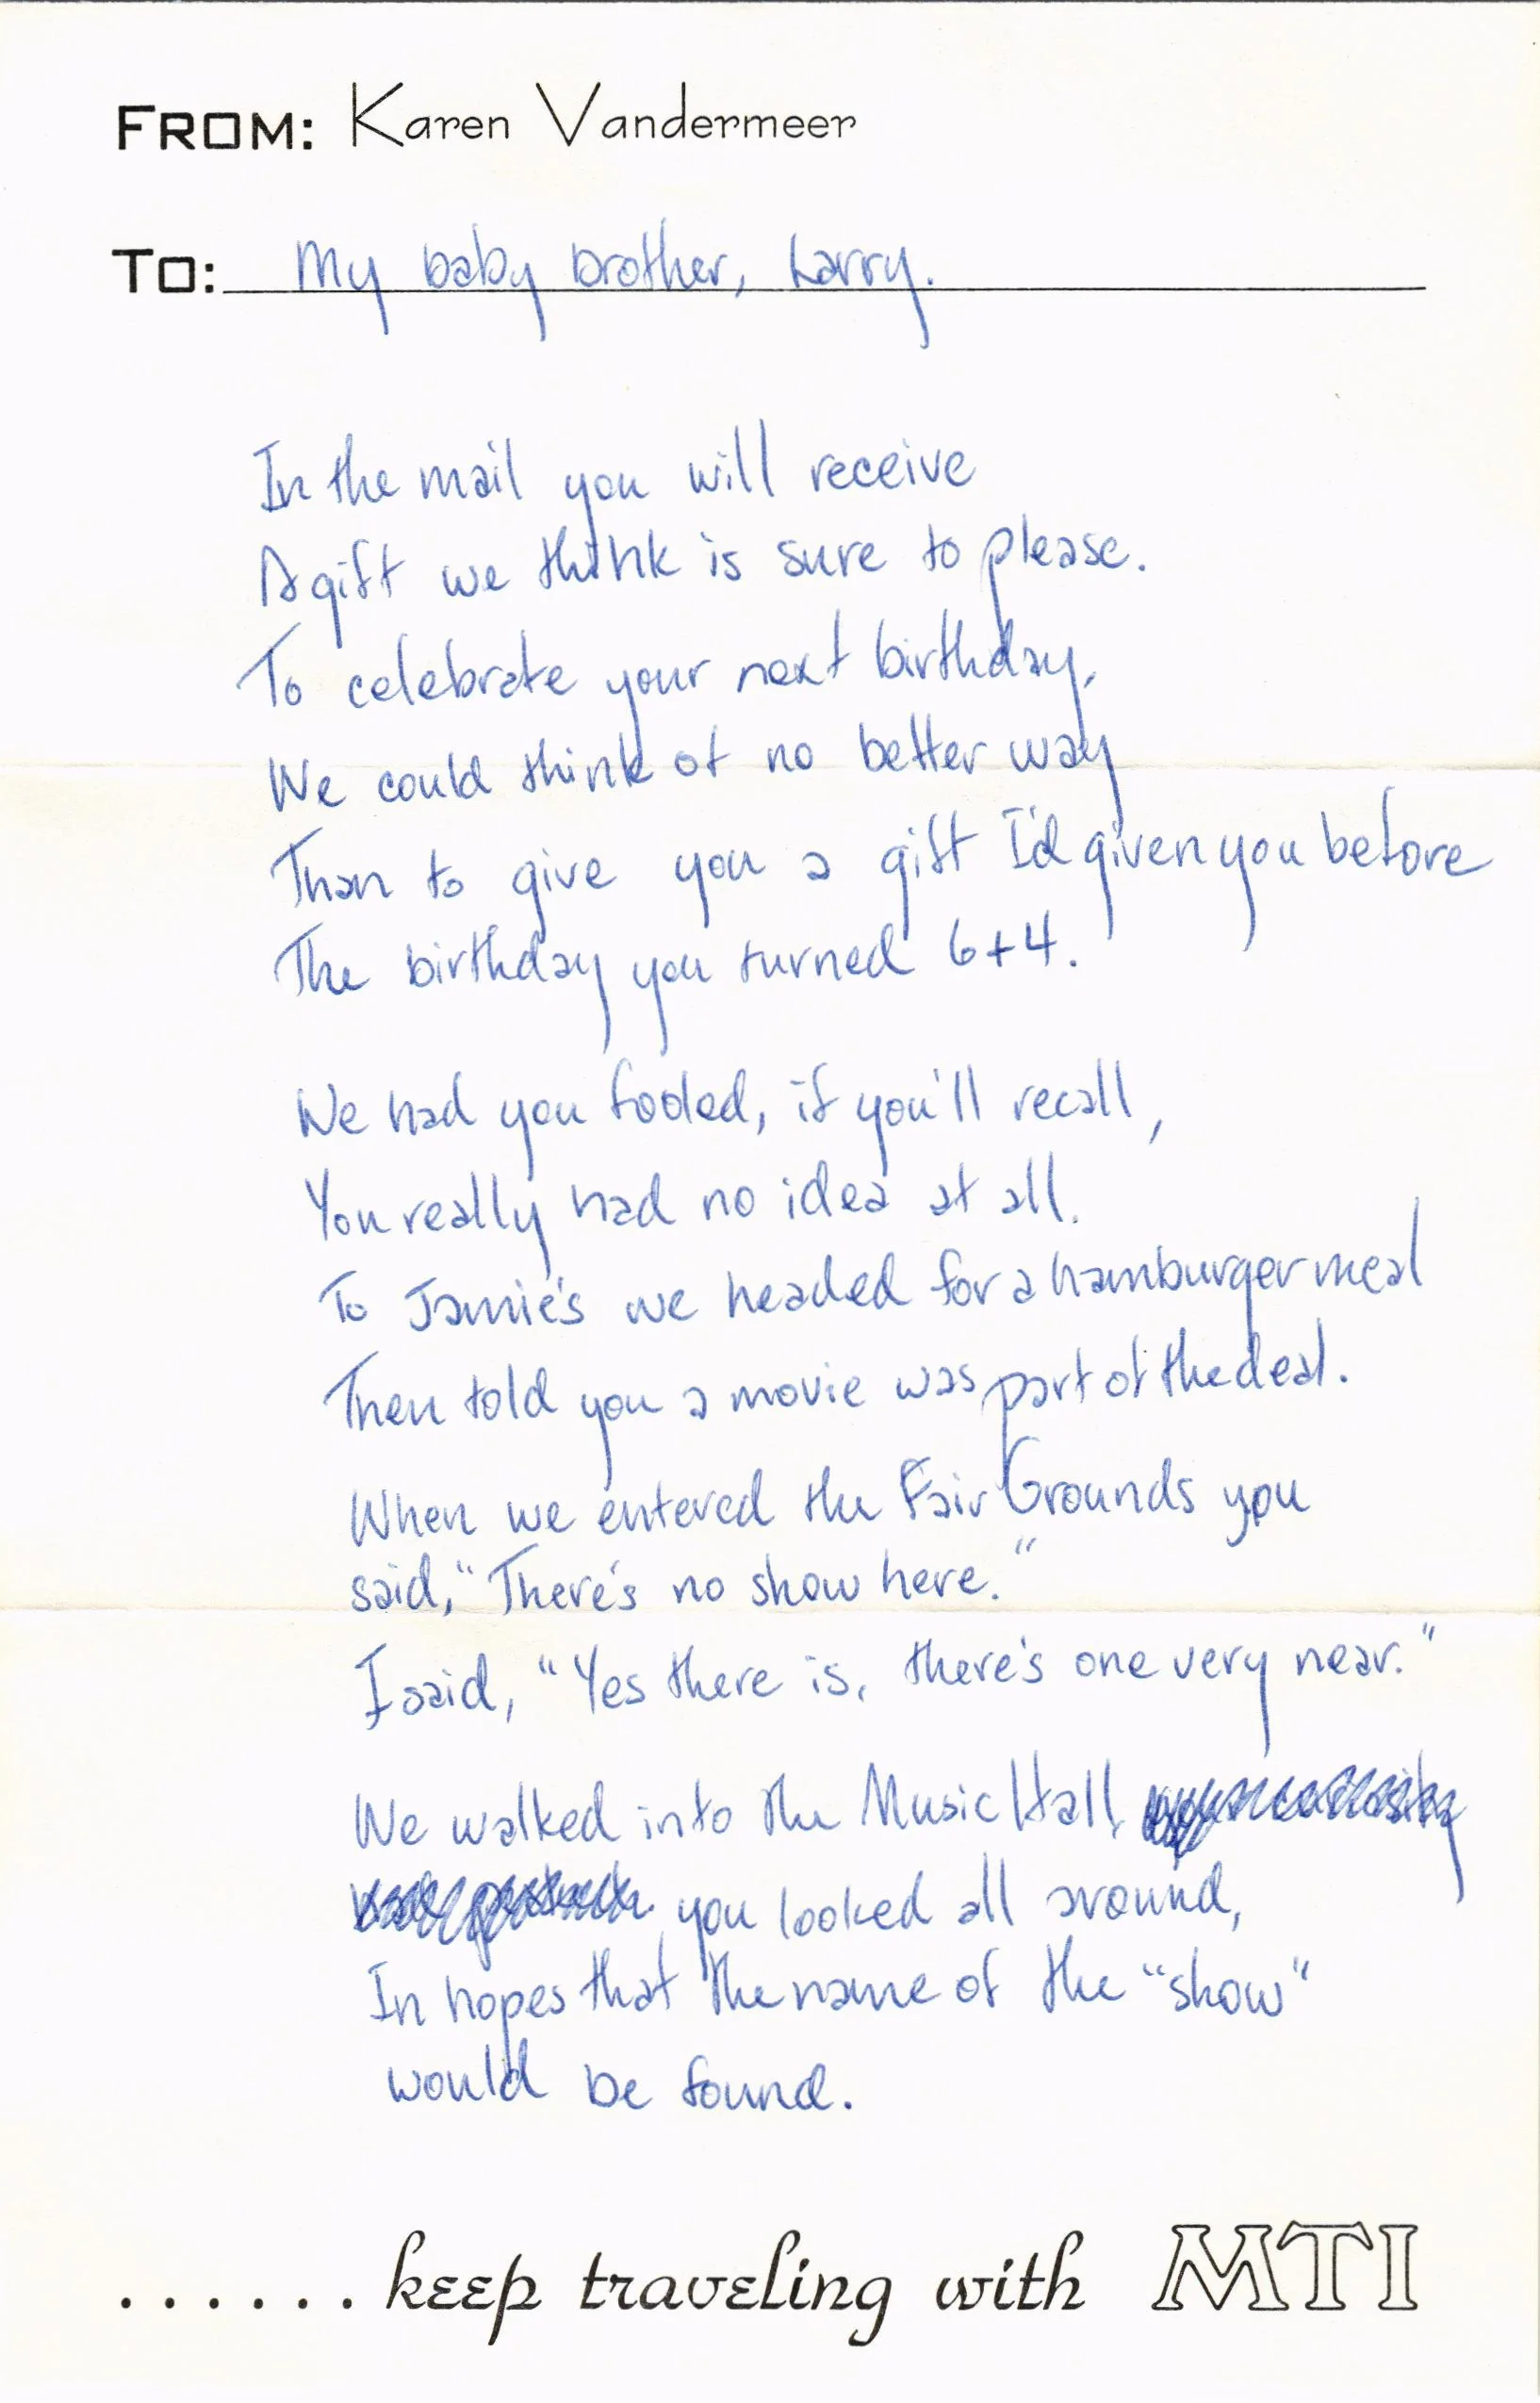 FROM: Karen Vandermeer
TO: My baby brother, Larry.
In the mail you will receive
A gift we think is sure to please.
To celebrate your next birthday,
We could think of no better way
Than to give you a gift I'd given you before
The birthday you turned 6+4.
We had you fooled, if you'll recall,
You really had no idea at all.
To Jamie's we headed for a hamburger meal
Then told you a movie was part of the deal.
When we entered the Fair Grounds you
said, "There's no show here."
I said, "Yes there is, there's one very near."
We walked into the Music Hall,
you looked all around,
In hopes that the name of the "show"
would be found.
...... keep traveling with MTI